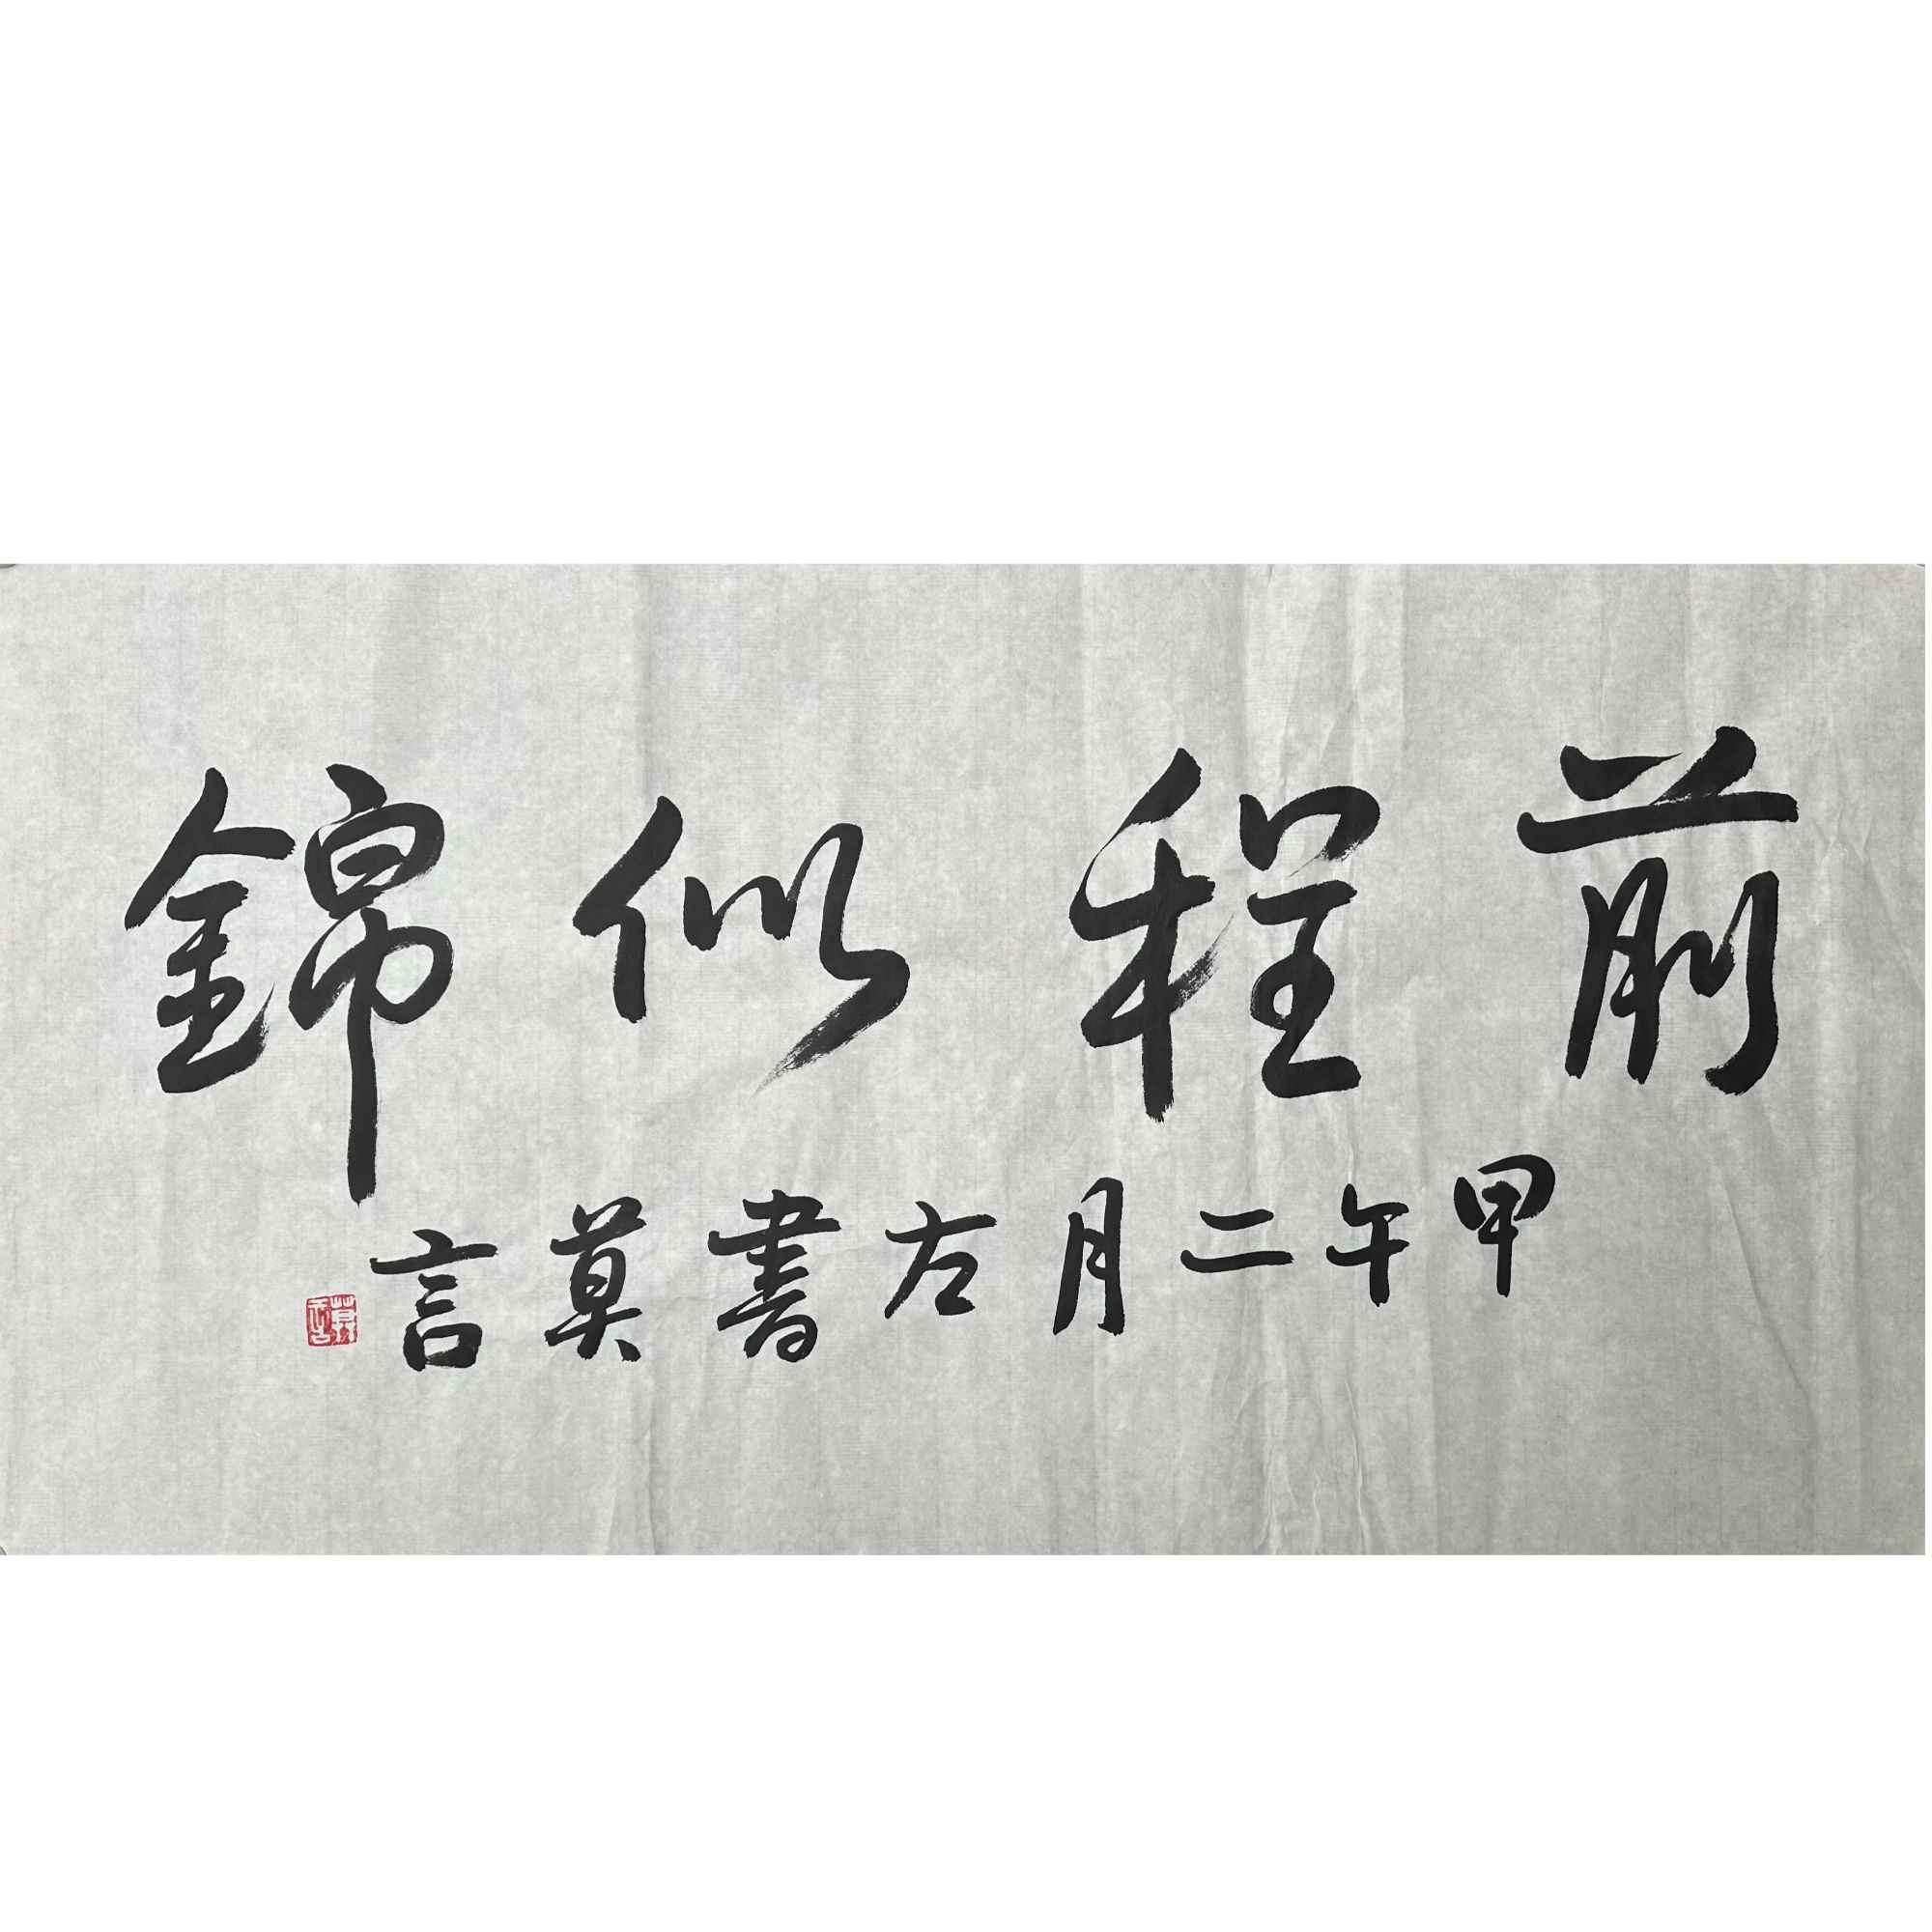 前程似錦
甲午二月左書莫言
莫言